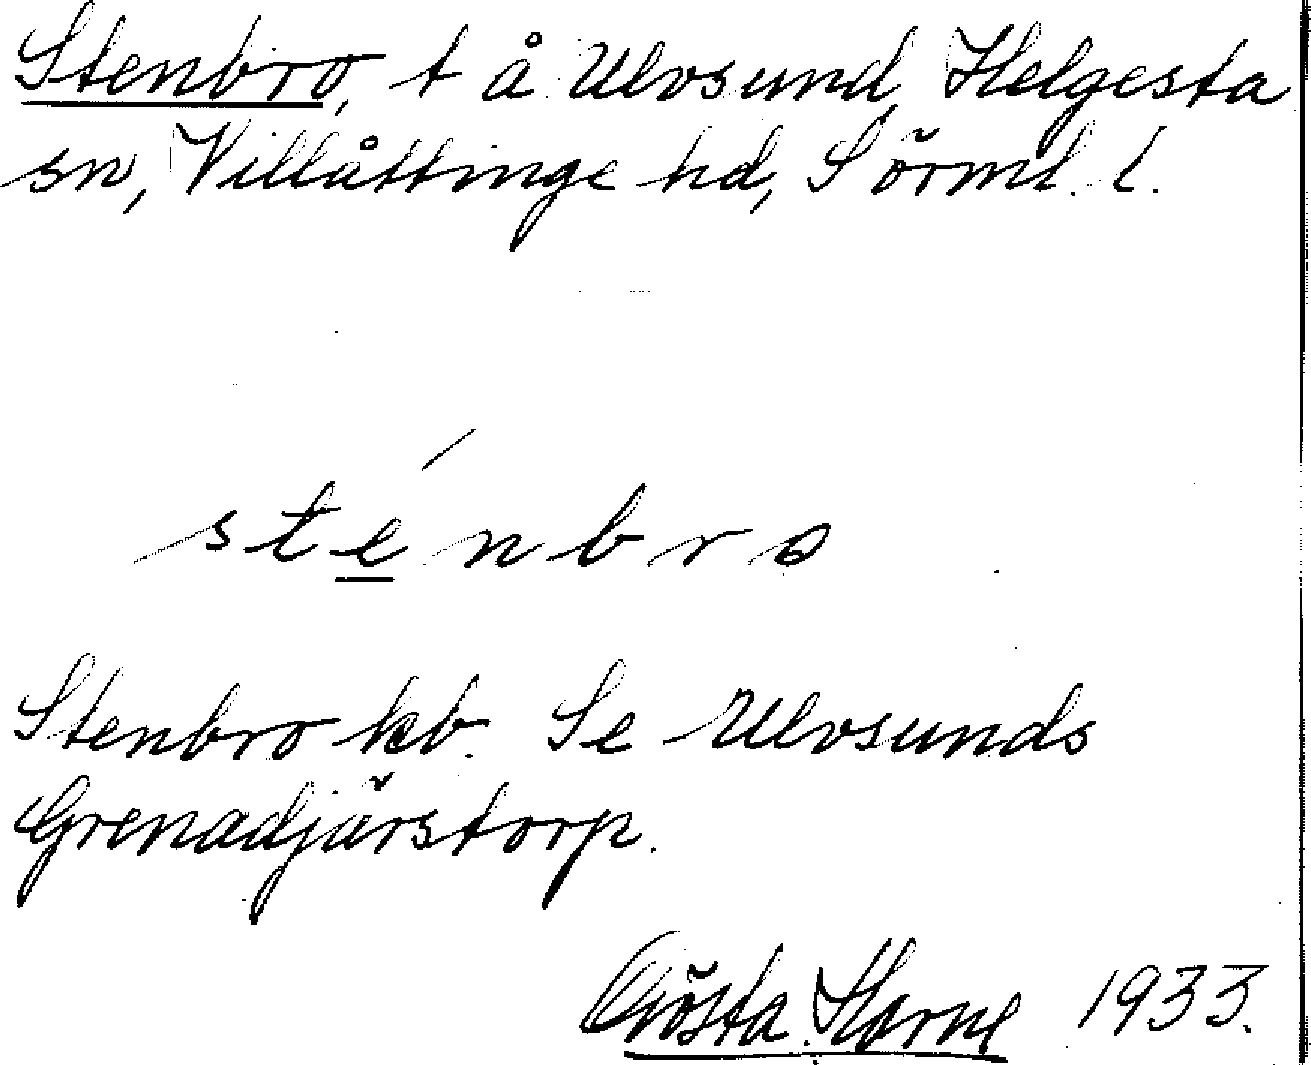 Stenbro, t å Ulvsund, Helgesta
sn, Villåttinge hd, Sörml. l.
sténbro
Stenbro kb. Se Ulvsunds
Grenadjärstorp.
Gösta 1933.